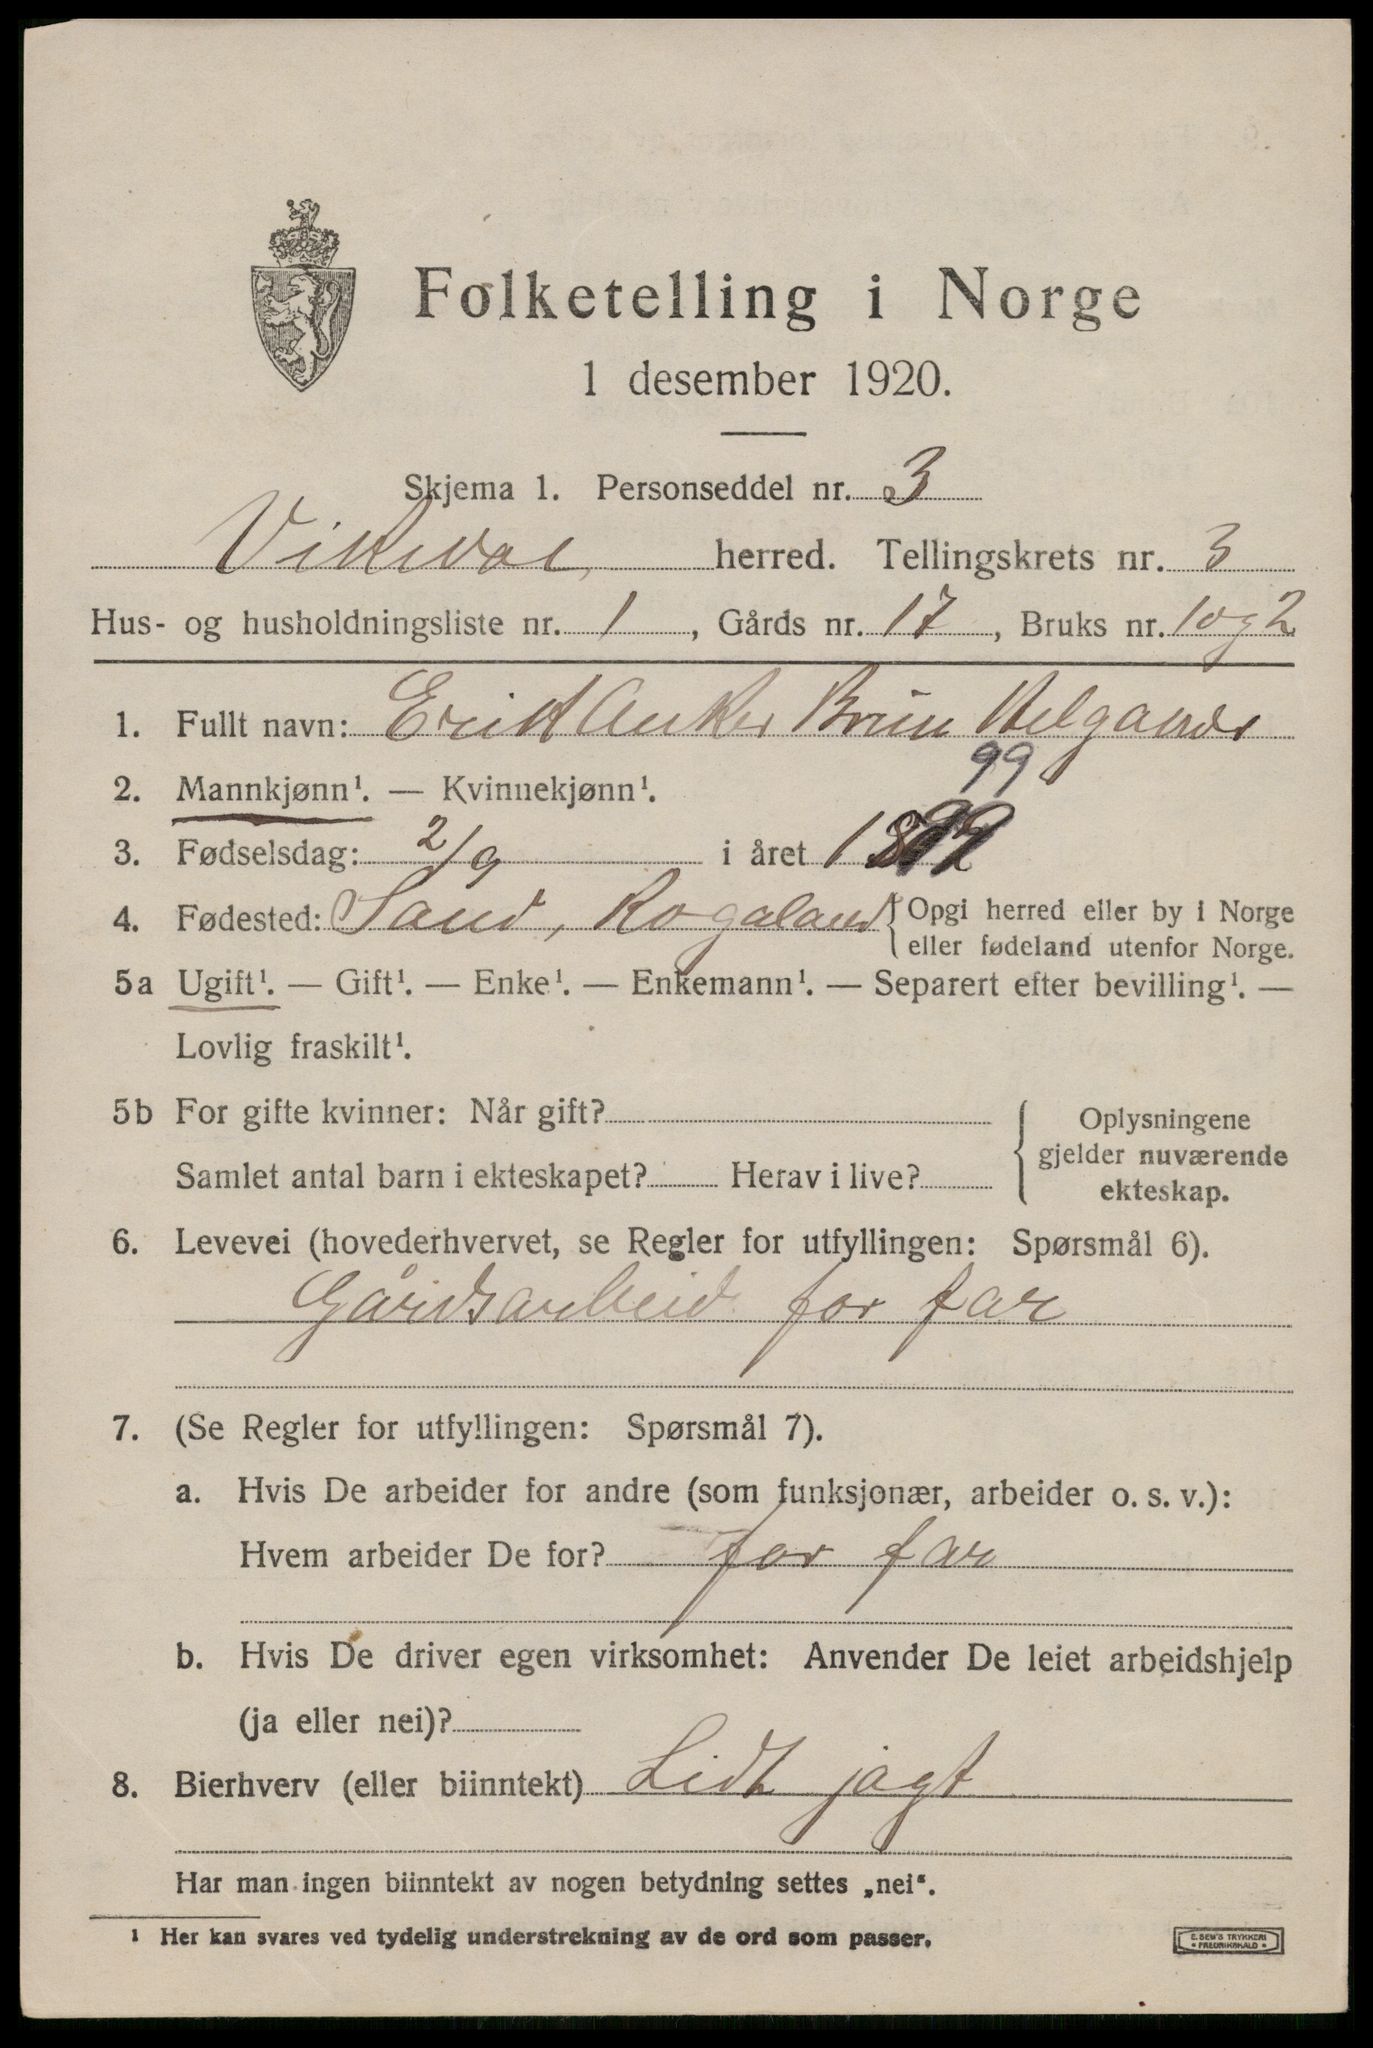 Folketelling i Norge
1 desember 1920.
Skjema 1. Personseddel nr. 3
Vikedal herred. Tellingskrets nr. 3
Hus- og husholdningsliste nr. 1, Gårds nr. 17, Bruks nr. 1 og 2
1. Fullt navn: Erik Anker Brun Helgaand
2. Mannkjønn¹. — Kvinnekjønn¹.
99
3. Fødselsdag: 2/9 i året 1899
4. Fødested: Sand, Rogaland { Opgi herred eller by i Norge
eller fødeland utenfor Norge.
5a Ugift¹. — Gift¹. — Enke¹. — Enkemann¹. — Separert efter bevilling¹. —
Lovlig fraskilt¹.
5b For gifte kvinner: Når gift?
Samlet antal barn i ekteskapet? Herav i live?
Oplysningene
gjelder nuværende
ekteskap.
6. Levevei (hovederhvervet, se Regler for utfyllingen: Spørsmål 6).
Gårdsarbeid for far
7. (Se Regler for utfyllingen: Spørsmål 7).
a. Hvis De arbeider for andre (som funksjonær, arbeider o. s. v.):
Hvem arbeider De for? for far
b. Hvis De driver egen virksomhet: Anvender De leiet arbeidshjelp
(ja eller nei)?
8. Bierhverv (eller biinntekt) Lidt jagt
Har man ingen biinntekt av nogen betydning settes „nei“.
¹ Her kan svares ved tydelig understrekning av de ord som passer.
E. SEM'S TRYKKERI
• FREDRIKSHALD •